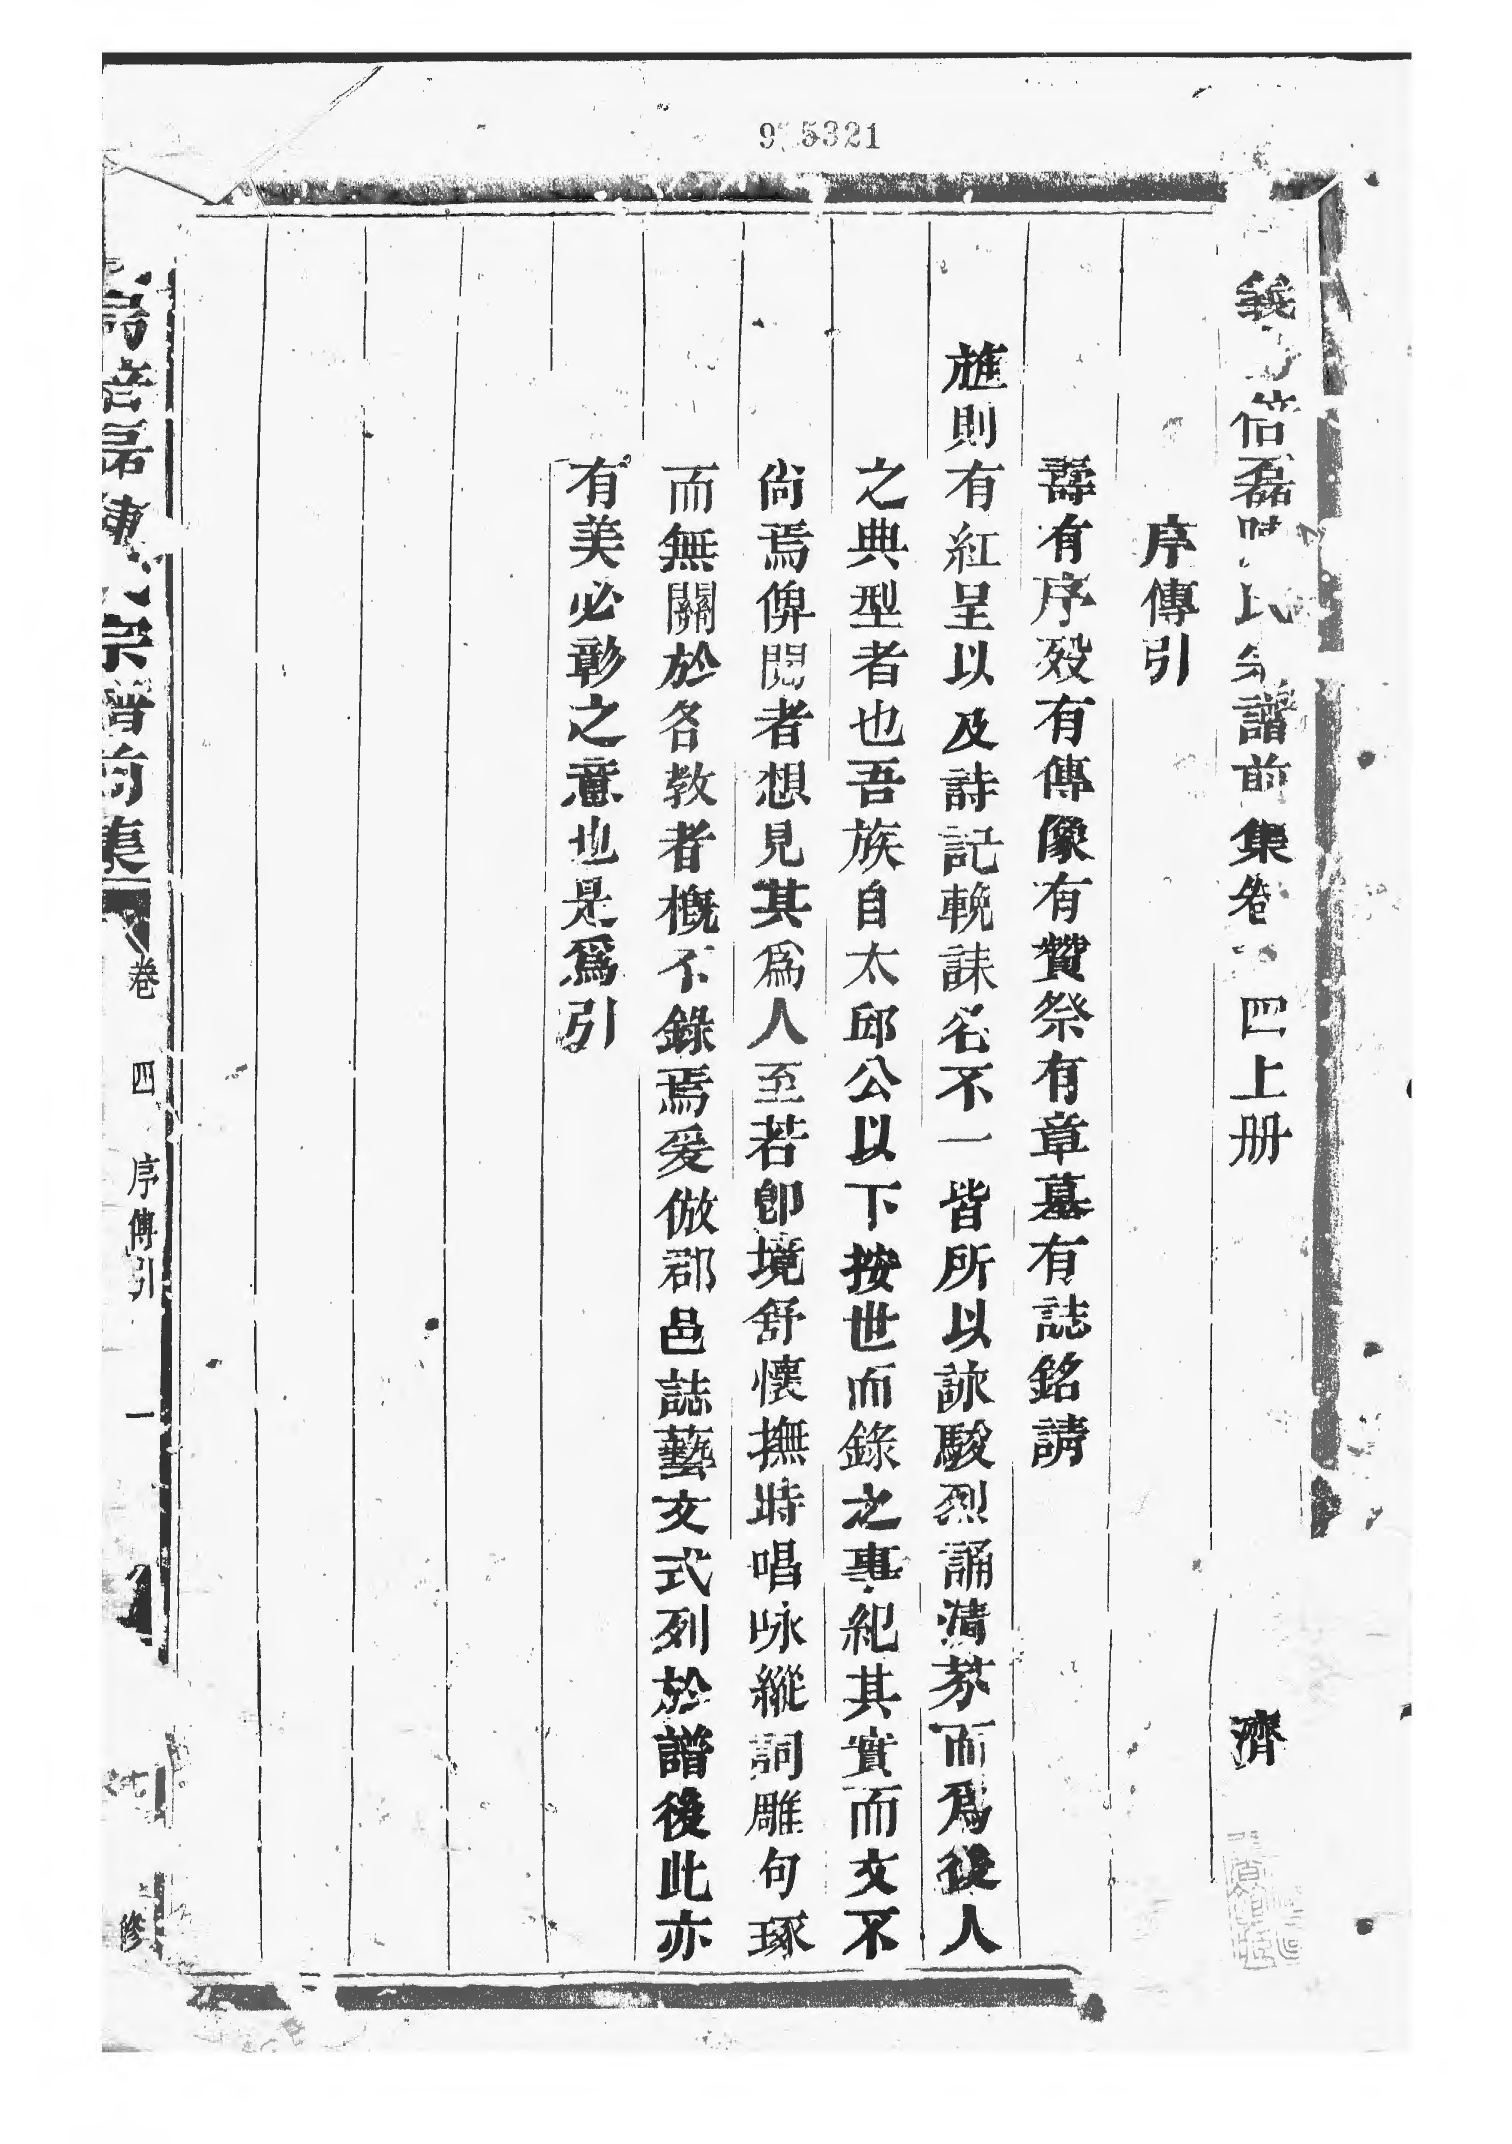 975321
義烏倍磊陳氏宗譜前集卷 四上册 濟
序傳引
壽有序歿有傳像有贊祭有章墓有誌銘請
旌則有紅呈以及詩記輓誄名不一皆所以詠駿烈誦清芬而爲後人
之典型者也吾族自太邱公以下按世而錄之事紀其實而文不
尚焉俾閱者想見其爲人至若卽境舒懷撫時唱咏縱詞雕句琢
而無關於名教者槪不錄焉爰倣郡邑誌藝文式列於譜後此亦
有美必彰之意也是爲引
烏倍磊陳氏宗譜前集 卷 四 序傳引 一 修